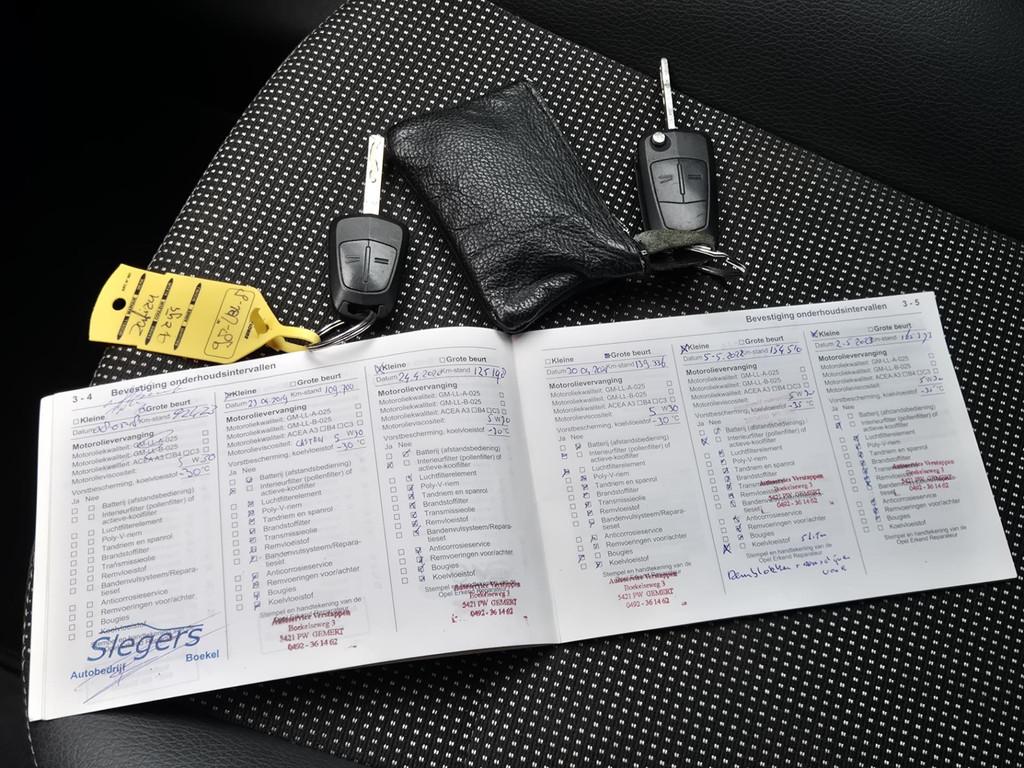 Zafira
90-LBL-8
3 - 4 Bevestiging onderhoudsintervallen
Kleine Grote beurt
Datum Km-stand
Motorolievervanging
Motoroliekwaliteit: GM-LL-A-025
Motoroliekwaliteit: GM-LL-B-025
Motoroliekwaliteit: ACEA A3 B4 C3
Motorolieviscositeit: 5 W 30
Vorstbescherming, koelvloeistof -30°C
Ja Nee
Batterij (afstandsbediening)
Interieurfilter (pollenfilter) of
actieve-koolfilter
Luchtfilterelement
Poly-V-riem
Tandriem en spanrol
Brandstoffilter
Transmissieolie
Remvloeistof
Bandenvulsysteem/Repara-
tieset
Anticorrosieservice
Remvoeringen voor/achter
Bougies
Koelvloeistof
Slegers
Autobedrijf Boekel
Kleine Grote beurt
Datum 23.04.2019 Km-stand 109.700
Motorolievervanging
Motoroliekwaliteit: GM-LL-A-025
Motoroliekwaliteit: GM-LL-B-025
Motoroliekwaliteit: ACEA A3 B4 C3
Motorolieviscositeit: 5 W30
Vorstbescherming, koelvloeistof -30°C
Ja Nee
Batterij (afstandsbediening)
Interieurfilter (pollenfilter) of
actieve-koolfilter
Luchtfilterelement
Poly-V-riem
Tandriem en spanrol
Brandstoffilter
Transmissieolie
Remvloeistof
Bandenvulsysteem/Repara-
tieset
Anticorrosieservice
Remvoeringen voor/achter
Bougies
Koelvloeistof
Stempel en handtekening van de
Autoservice Verstappen
Boekelseweg 3
5421 PW GEMERT
0492 - 36 14 62
Kleine Grote beurt
Datum Km-stand
Motorolievervanging
Motoroliekwaliteit: GM-LL-A-025
Motoroliekwaliteit: GM-LL-B-025
Motoroliekwaliteit: ACEA A3 B4 C3
Motorolieviscositeit: 5 W30
Vorstbescherming, koelvloeistof -30°C
Ja Nee
Batterij (afstandsbediening)
Interieurfilter (pollenfilter) of
actieve-koolfilter
Luchtfilterelement
Poly-V-riem
Tandriem en spanrol
Brandstoffilter
Transmissieolie
Remvloeistof
Bandenvulsysteem/Repara-
tieset
Anticorrosieservice
Remvoeringen voor/achter
Bougies
Koelvloeistof
Stempel en handtekening van de
Opel Erkend Reparateur
Autoservice Verstappen
Boekelseweg 3
5421 PW GEMERT
0492 - 36 14 62
Bevestiging onderhoudsintervallen 3 - 5
Kleine Grote beurt
Datum Km-stand 139.336
Motorolievervanging
Motoroliekwaliteit: GM-LL-A-025
Motoroliekwaliteit: GM-LL-B-025
Motoroliekwaliteit: ACEA A3 B4 C3
Motorolieviscositeit: 5 W30
Vorstbescherming, koelvloeistof -30°C
Ja Nee
Batterij (afstandsbediening)
Interieurfilter (pollenfilter) of
actieve-koolfilter
Luchtfilterelement
Poly-V-riem
Tandriem en spanrol
Brandstoffilter
Transmissieolie
Remvloeistof
Bandenvulsysteem/Repara-
tieset
Anticorrosieservice
Remvoeringen voor/achter
Bougies
Koelvloeistof
Autoservice Verstappen
Boekelseweg 3
5421 PW GEMERT
0492 - 36 14 62
Kleine Grote beurt
Datum 5-5-2022 Km-stand 154.510
Motorolievervanging
Motoroliekwaliteit: GM-LL-A-025
Motoroliekwaliteit: GM-LL-B-025
Motoroliekwaliteit: ACEA A3 B4 C3
Motorolieviscositeit: 5 W30
Vorstbescherming, koelvloeistof -35°C
Ja Nee
Batterij (afstandsbediening)
Interieurfilter (pollenfilter) of
actieve-koolfilter
Luchtfilterelement
Poly-V-riem
Tandriem en spanrol
Brandstoffilter
Transmissieolie
Remvloeistof
tieset
Anticorrosieservice
Remvoeringen voor/achter
Bougies
Koelvloeistof
Stempel en handtekening van de
Opel Erkend Reparateur
Autoservice Verstappen
Boekelseweg 3
5421 PW GEMERT
0492 - 36 14 62
Remblokken
Kleine Grote beurt
Datum 2-5-2023 Km-stand
Motorolievervanging
Motoroliekwaliteit: GM-LL-A-025
Motoroliekwaliteit: GM-LL-B-025
Motoroliekwaliteit: ACEA A3 B4 C3
Motorolieviscositeit: 5 W30
Vorstbescherming, koelvloeistof -30°C
Ja Nee
Batterij (afstandsbediening)
Interieurfilter (pollenfilter) of
actieve-koolfilter
Luchtfilterelement
Poly-V-riem
Tandriem en spanrol
Brandstoffilter
tieset
Anticorrosieservice
Remvoeringen voor/achter
Bougies
Koelvloeistof
Stempel en handtekening van de
Opel Erkend Reparateur
Autoservice Verstappen
Boekelseweg 3
5421 PW GEMERT
0492 - 36 14 62